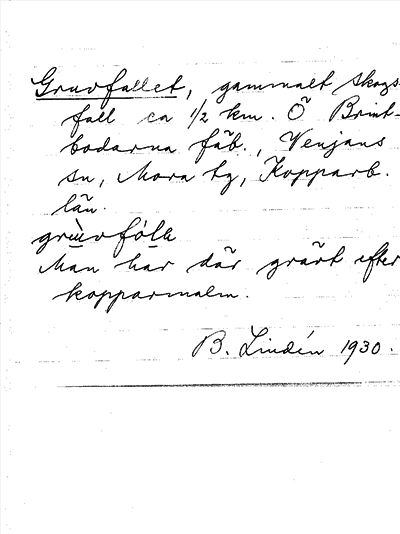 Gruvfallet, gammalt skogs-
fall ca 1/2 km. Ö Brint-
bodarna fäb., Venjans
sn, Mora tg, Kopparb.
län.
grùvfól̲k
Man har där grävt efter
kopparmalm.
B. Lindén 1930.